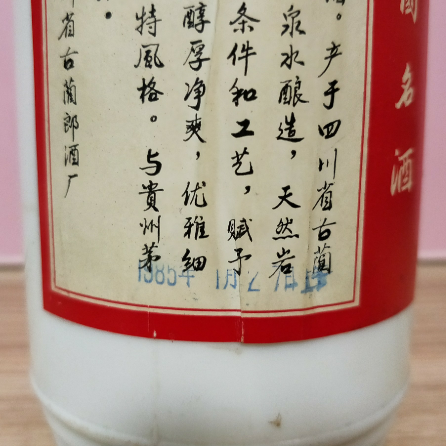 國名酒
。产于四川省古蔺
泉水酿造，天然岩
条件和工艺，赋予
醇厚净爽，优雅细
特風格。与貴州茅
。
省古蔺郎酒厂
1985年 1月2